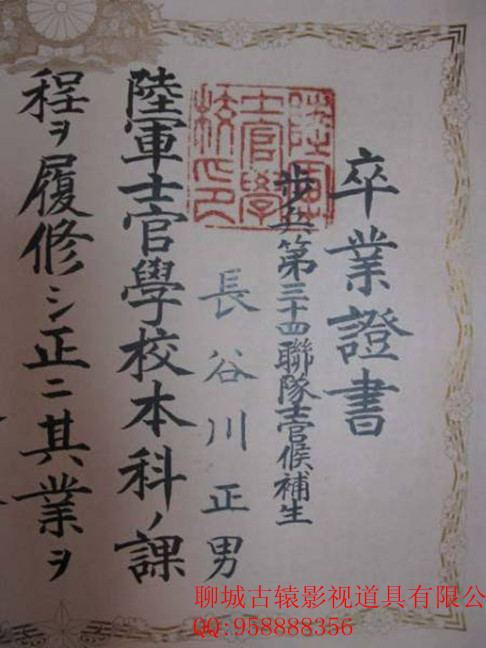 卒業證書
步兵第三十四聯隊士官候補生
長谷川正男
陸軍士官學校本科ノ課
程ヲ履修シ正ニ其業ヲ
陸軍
士官學
校之印
聊城古辕影视道具有限公
QQ:958888356